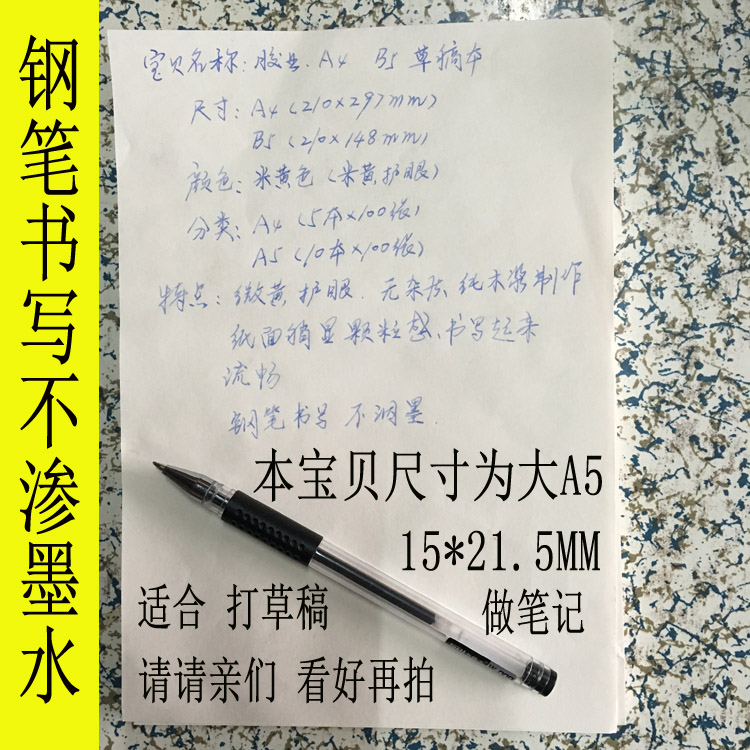 钢笔书写不渗墨水
宝贝名称：胶装 A4 B5 草稿本
尺寸：A4（210×297mm）
B5（210×148mm）
颜色：米黄色（米黄护眼）
分类：A4（5本×100张）
A5（10本×100张）
特点：微黄护眼.无杂质、纯木浆制作
纸面稍显颗粒感、书写起来
流畅
钢笔书写 不洇墨.
本宝贝尺寸为大A5
15*21.5MM
适合 打草稿 做笔记
请请亲们 看好再拍